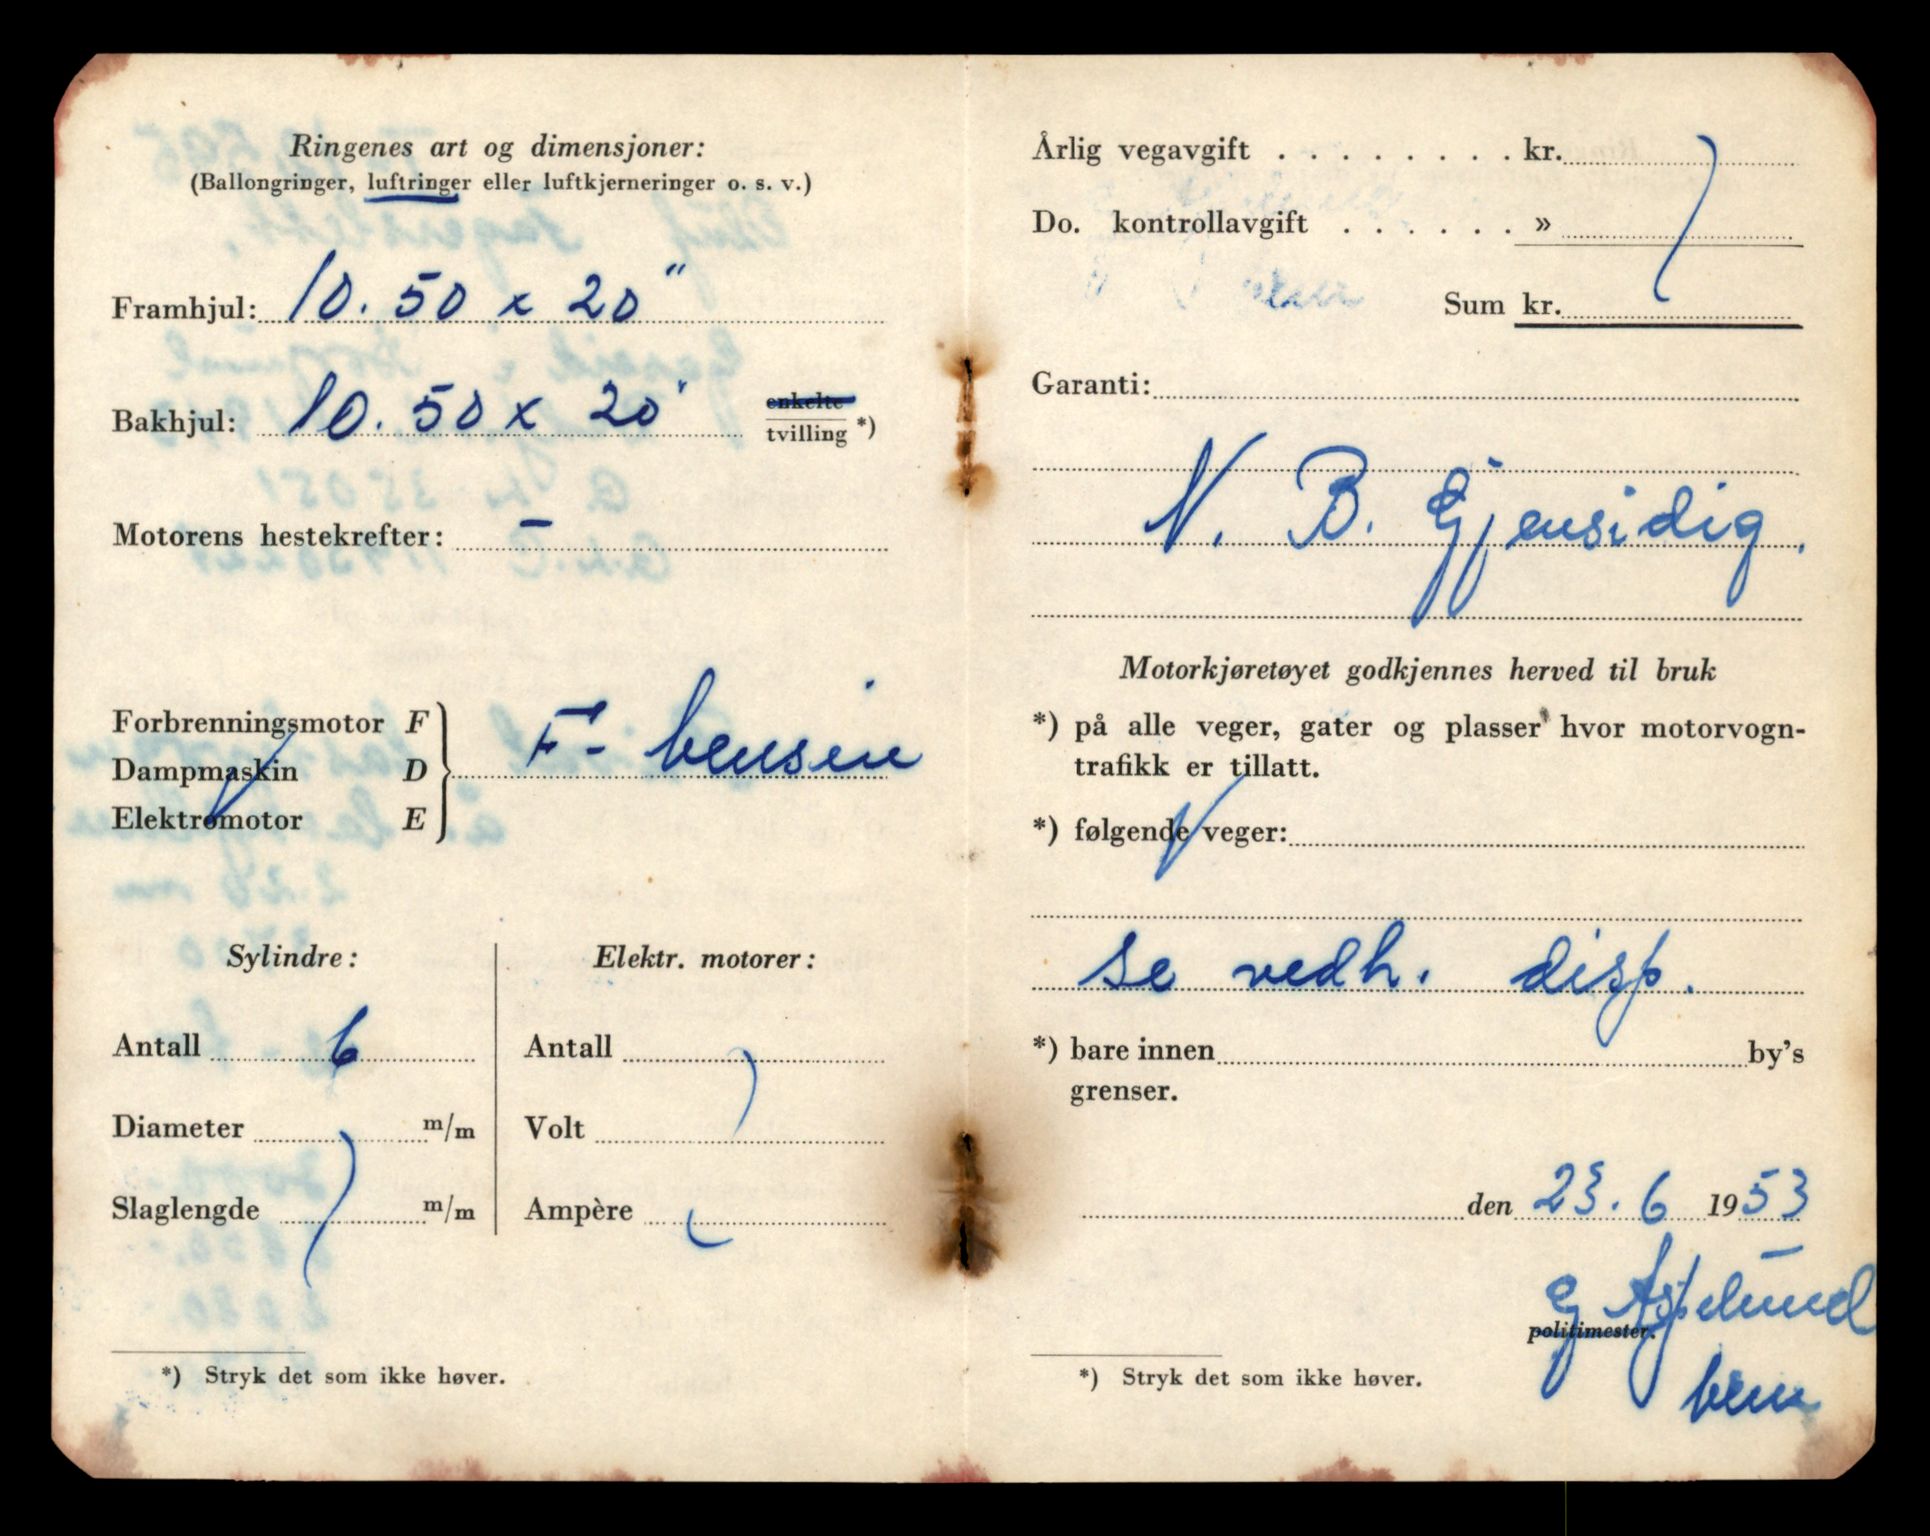 Ringenes art og dimensjoner:
(Ballongringer, luftringer eller luftkjerneringer o. s. v.)
Framhjul: 10.50 x 20"
Bakhjul: 10.50 x 20" enkelte
tvilling *)
Motorens hestekrefter: –
Forbrenningsmotor F
Dampmaskin D
Elektromotor E
F- bensin
Sylindre:
Antall 6
Diameter m/m
Slaglengde m/m
Elektr. motorer:
Antall
Volt
Ampère
*) Stryk det som ikke høver.
Årlig vegavgift . . . . . . . . kr.
Do. kontrollavgift . . . . . . »
Sum kr.
Garanti:
N. B. Gjensidig.
Motorkjøretøyet godkjennes herved til bruk
*) på alle veger, gater og plasser hvor motorvogn-
trafikk er tillatt.
*) følgende veger:
se vedh. disp.
*) bare innen by's
grenser.
den 23.6 1953
G Aspelund
politimester.
*) Stryk det som ikke høver.